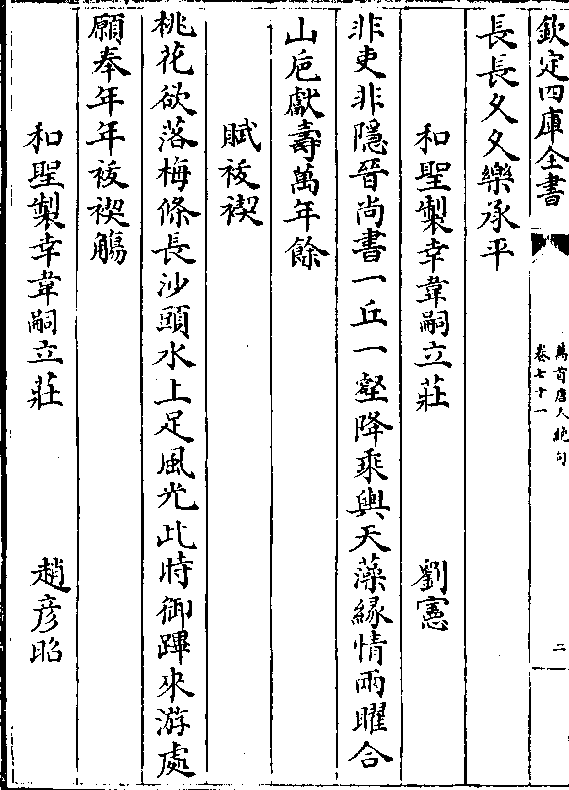 欽定四庫全書
萬首唐人絶句
卷七十一
二
長長久久樂承平
和聖製幸韋嗣立莊　劉憲
非吏非隱晉尚書一丘一壑降乘輿天藻緣情兩曜合
山巵獻壽萬年餘
賦祓禊
桃花欲落梅條長沙頭水上足風光此時御蹕來游處
願奉年年祓禊觴
和聖製幸韋嗣立莊　趙彦昭